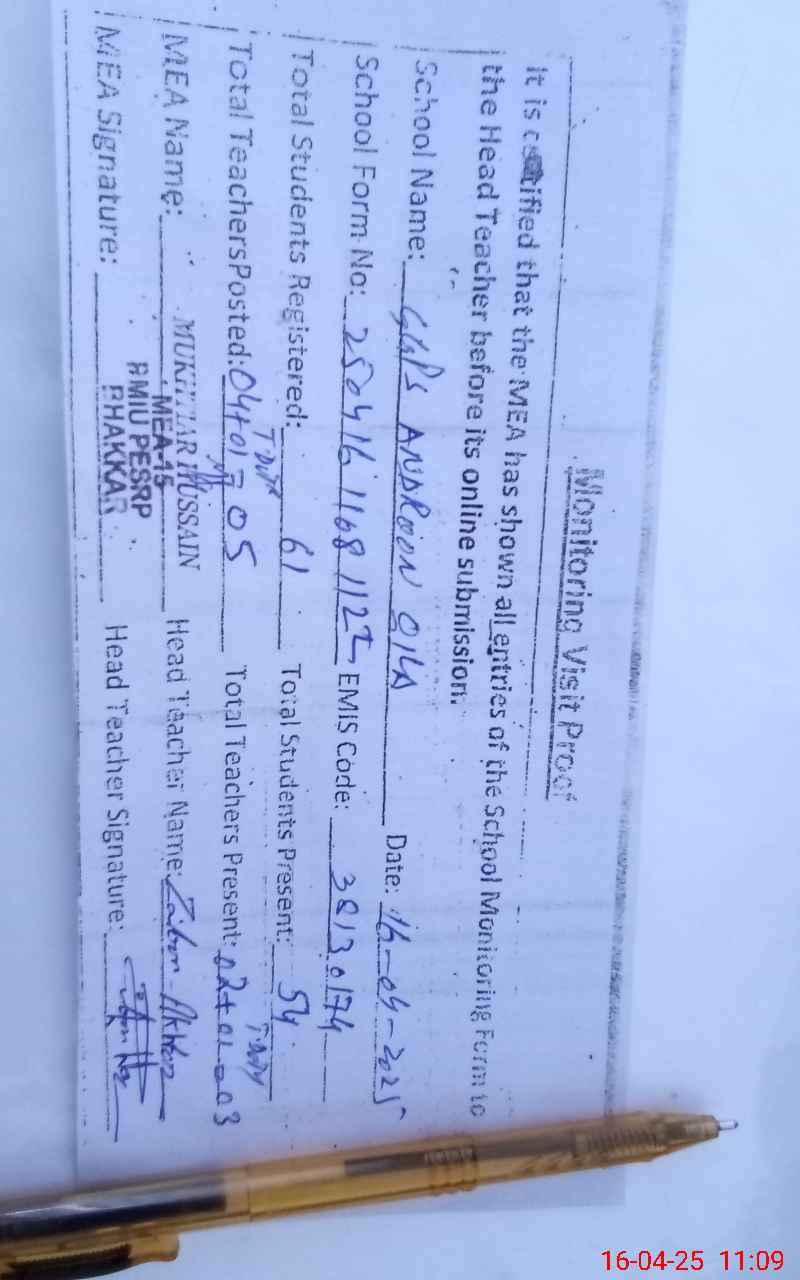 Monitoring Visit Proof
It is certified that the MEA has shown all entries of the School Monitoring Form to
the Head Teacher before its online submission.
School Name: GGPS ANDROON QILA Date: 16-04-2025
School Form No: 25041611681122 EMIS Code: 38130174
Total Students Registered: 61 Total Students Present: 54
T.Duty T.Duty
Total Teachers Posted: 04+01=05 Total Teachers Present: 02+01=03
MEA Name: MUKHTAR HUSSAIN Head Teacher Name: Akhter
MEA-15
MEA Signature: Head Teacher Signature:
PMIU PESRP
BHAKKAR
16-04-25 11:09